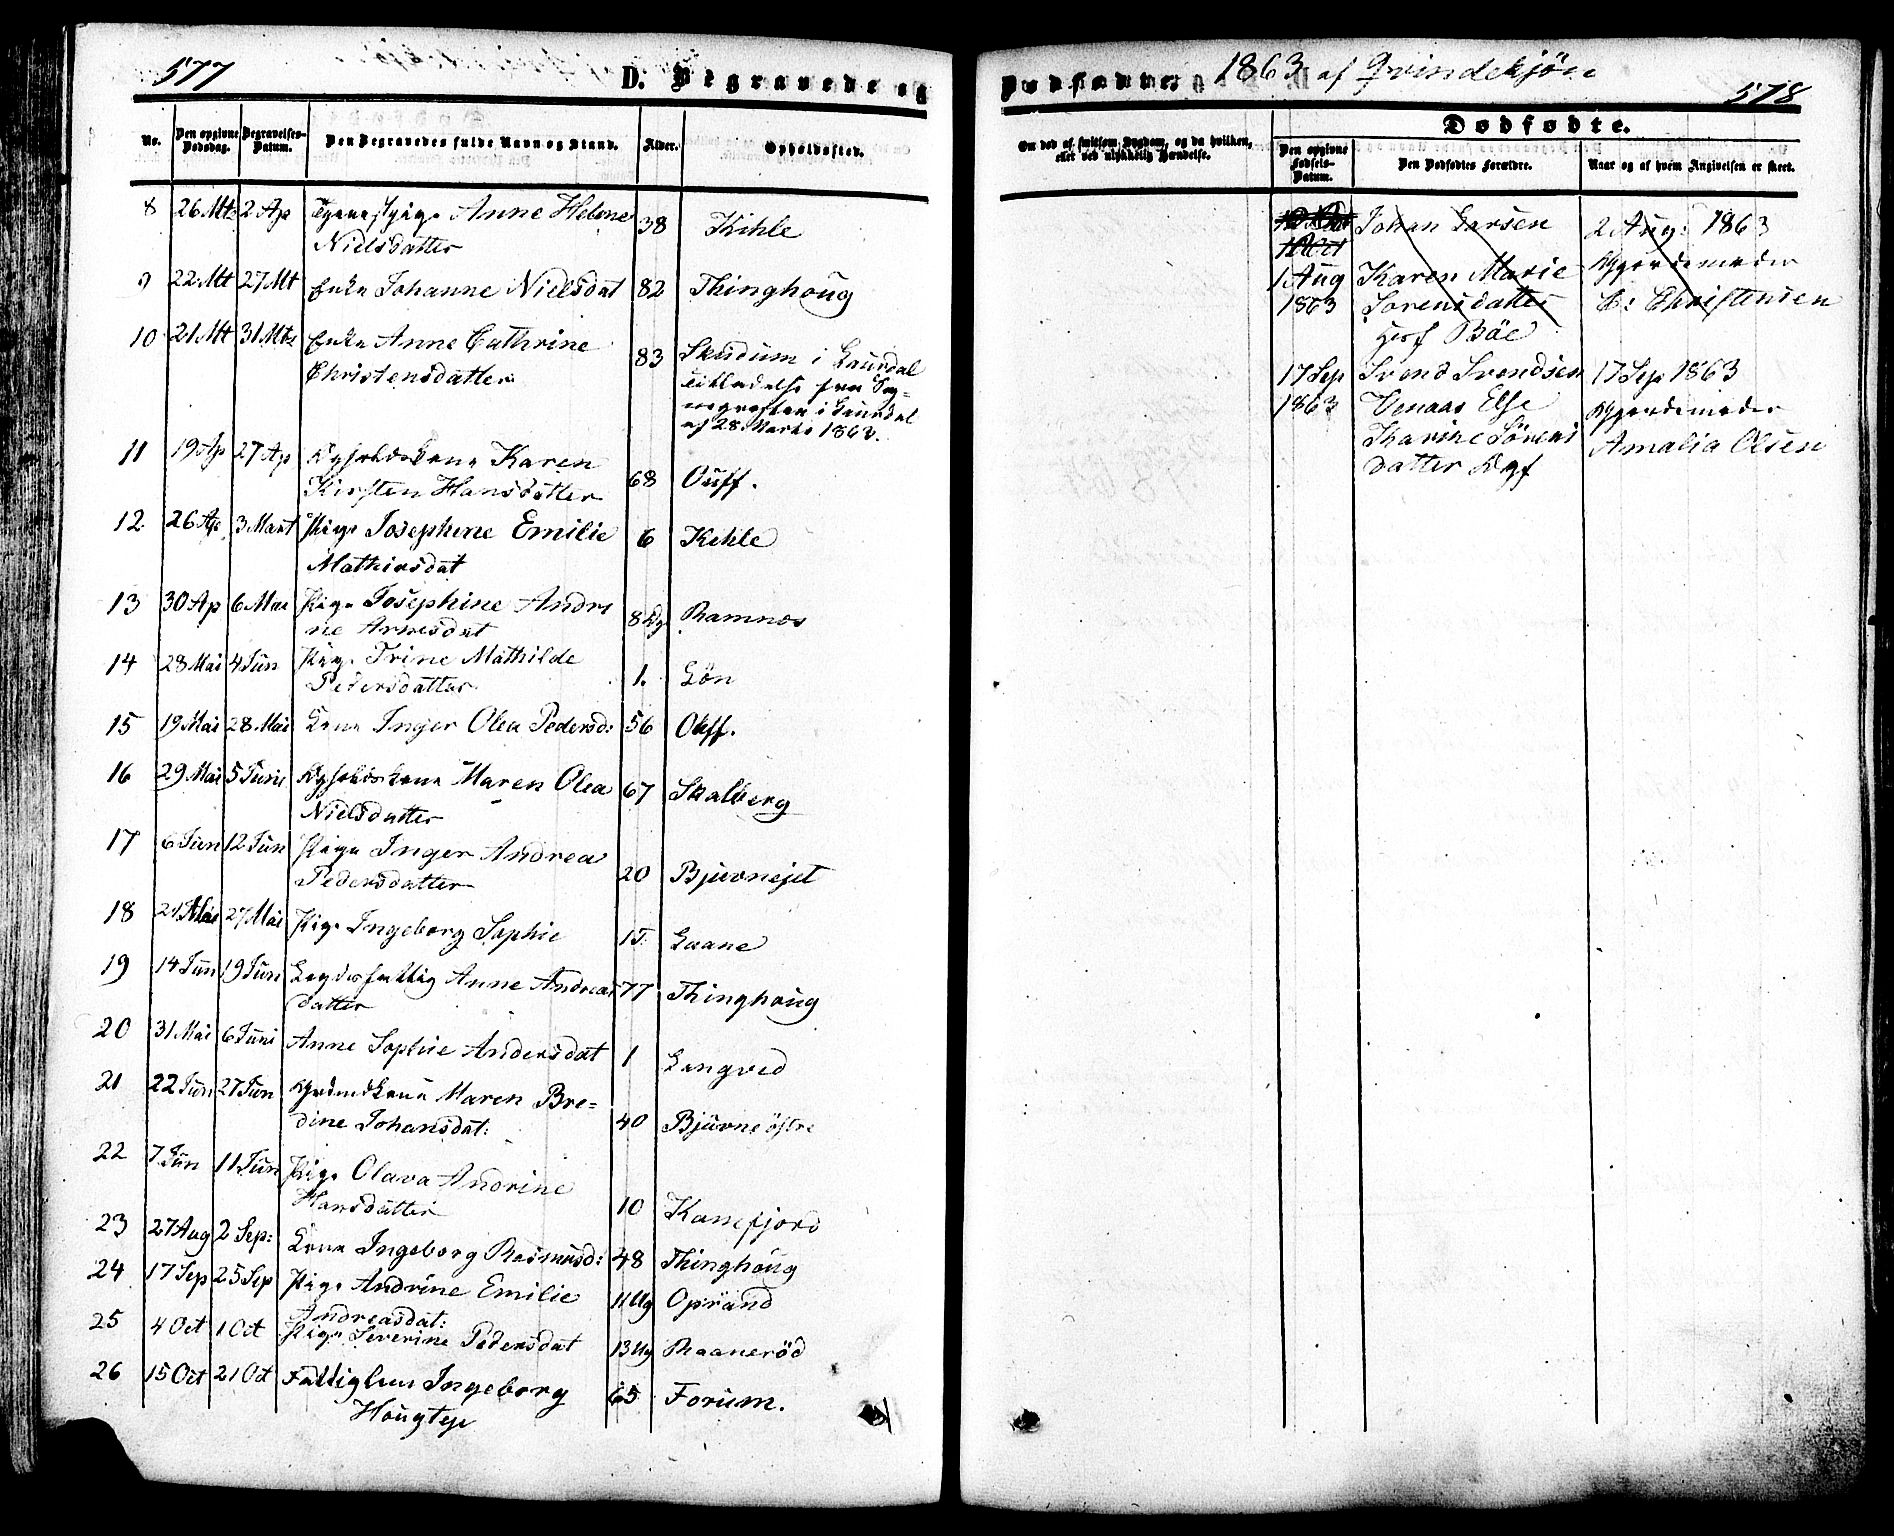 577
D. Begravede og
No.
Den opgivne Dødsdag.
Begravelses-Datum.
Den Begravedes fulde Navn og Stand.
Alder.
Opholdssted.
8 26 Mts 2 Ap Tjenestpige Anne Helene 38 Kihle
Nielsdatter
9 22 Mt 27 Mt Enke Johanne Nielsdat 82 Thinghoug
10 21 Mt 31 Mts Enke Anne Cathrine 83 i Laurdal
Christensdatter
i Laurdal
af 28 Marts 1863.
11 19 Ap 27 Ap Karen 68 Ouff.
Kirsten Hansdatter
12 26 Ap 3 Mart Pige Josephine Emilie 6 Kehle
Mathiesdat
13 30 Ap 6 Mai Pige Josephine Andri 8 Dg Ramnes
ne Arnesdat
14 28 Mai 4 Jun Pige Trine Mathilde 1. Løn
Pedersdatter
15 19 Mai 28 Mai Kone Inger Olea Pedersd: 56 Ouff.
16 29 Mai 5 Juni Maren Olea 67 Skalberg
Nielsdatter
17 6 Jun 12 Jun Pige Inger Andrea 20 Bjuvnejet
Pedersdatter
18 21 Mai 27 Mai Pige Ingeborg Sophie 15. Laane
19 14 Jun 19 Jun Lægdsfattig Anne Andreas 77 Thinghoug
datter
20 31 Mai 6 Juni Anne Sophie Andersdat 1 Langved
21 22 Jun 27 Jun Maren Bre= 40 Bjuvne östre
dine Johansdat:
22 7 Jun 11 Jun Pige Olava Andrine 10 Kanefjord
Hansdatter
23 27 Aug 2 Sep: Kone Ingeborg Rasmusd: 48 Thinghoug
24 17 Sep 25 Sep Pige Andrine Emilie 11 Ug Oprand
Andreasdat:
25 4 Oct 1 Oct Pige Severine Pedersdat 13 Ug Raaneröd
26 15 Oct 21 Oct Fattiglem Ingeborg 65 Forum.
Hougtej
Dødfødte: 1863 af Qvindekjøn
578
Om død af smitsom Sygdom, og da hvilken,
eller ved ulykkelig Hændelse.
Dødfødte.
Den opgivne Fødsels-Datum.
Den Dødfødtes Forældre.
Naar og af hvem Angivelsen er skeet.
Johan Larsen 2 Aug: 1863
1 Aug Karen Marie Gjordemoder
1863 Sorensdatter C: Christensen
Bäe
17 Sep Svend Svendsen 17 Sep 1863
1863 Venaas Else Gjordemoder
Karine Sörens Amalia Olsen
datter